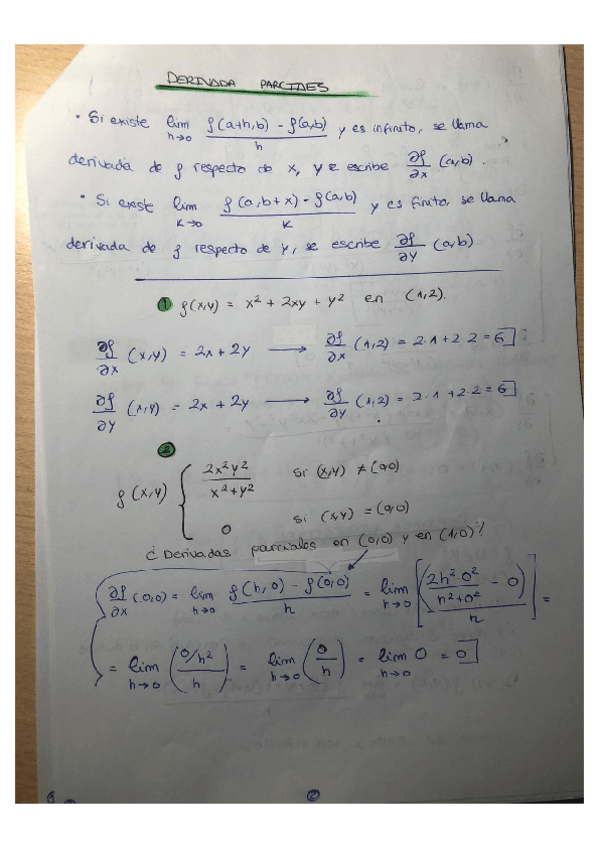 DERIVADA PARCIALES
• Si existe lim h→0 f(a+h,b) - f(a,b) / h y es infinito, se llama
derivada de f respecto de x, y se escribe ∂f/∂x (a,b).
• Si existe lim K→0 f(a,b+x) - f(a,b) / K y es finito, se llama
derivada de f respecto de y, se escribe ∂f/∂y (a,b)
① f(x,y) = x² + 2xy + y² en (1,2).
∂f/∂x (x,y) = 2x + 2y → ∂f/∂x (1,2) = 2·1 + 2 2 = 6
∂f/∂y (x,y) = 2x + 2y → ∂f/∂y (1,2) = 2·1 + 2·2 = 6
②
f(x,y) { 2x²y² / x²+y² si (x,y) ≠ (0,0)
0 si (x,y) = (0,0)
¿Derivadas parciales en (0,0) y en (1,0)?
∂f/∂x (0,0) = lim h→0 f(h,0) - f(0,0) / h = lim h→0 [(2h²·0² / h²+0² - 0) / h] =
= lim h→0 (0/h² / h) = lim h→0 (0/h) = lim h→0 0 = 0
②